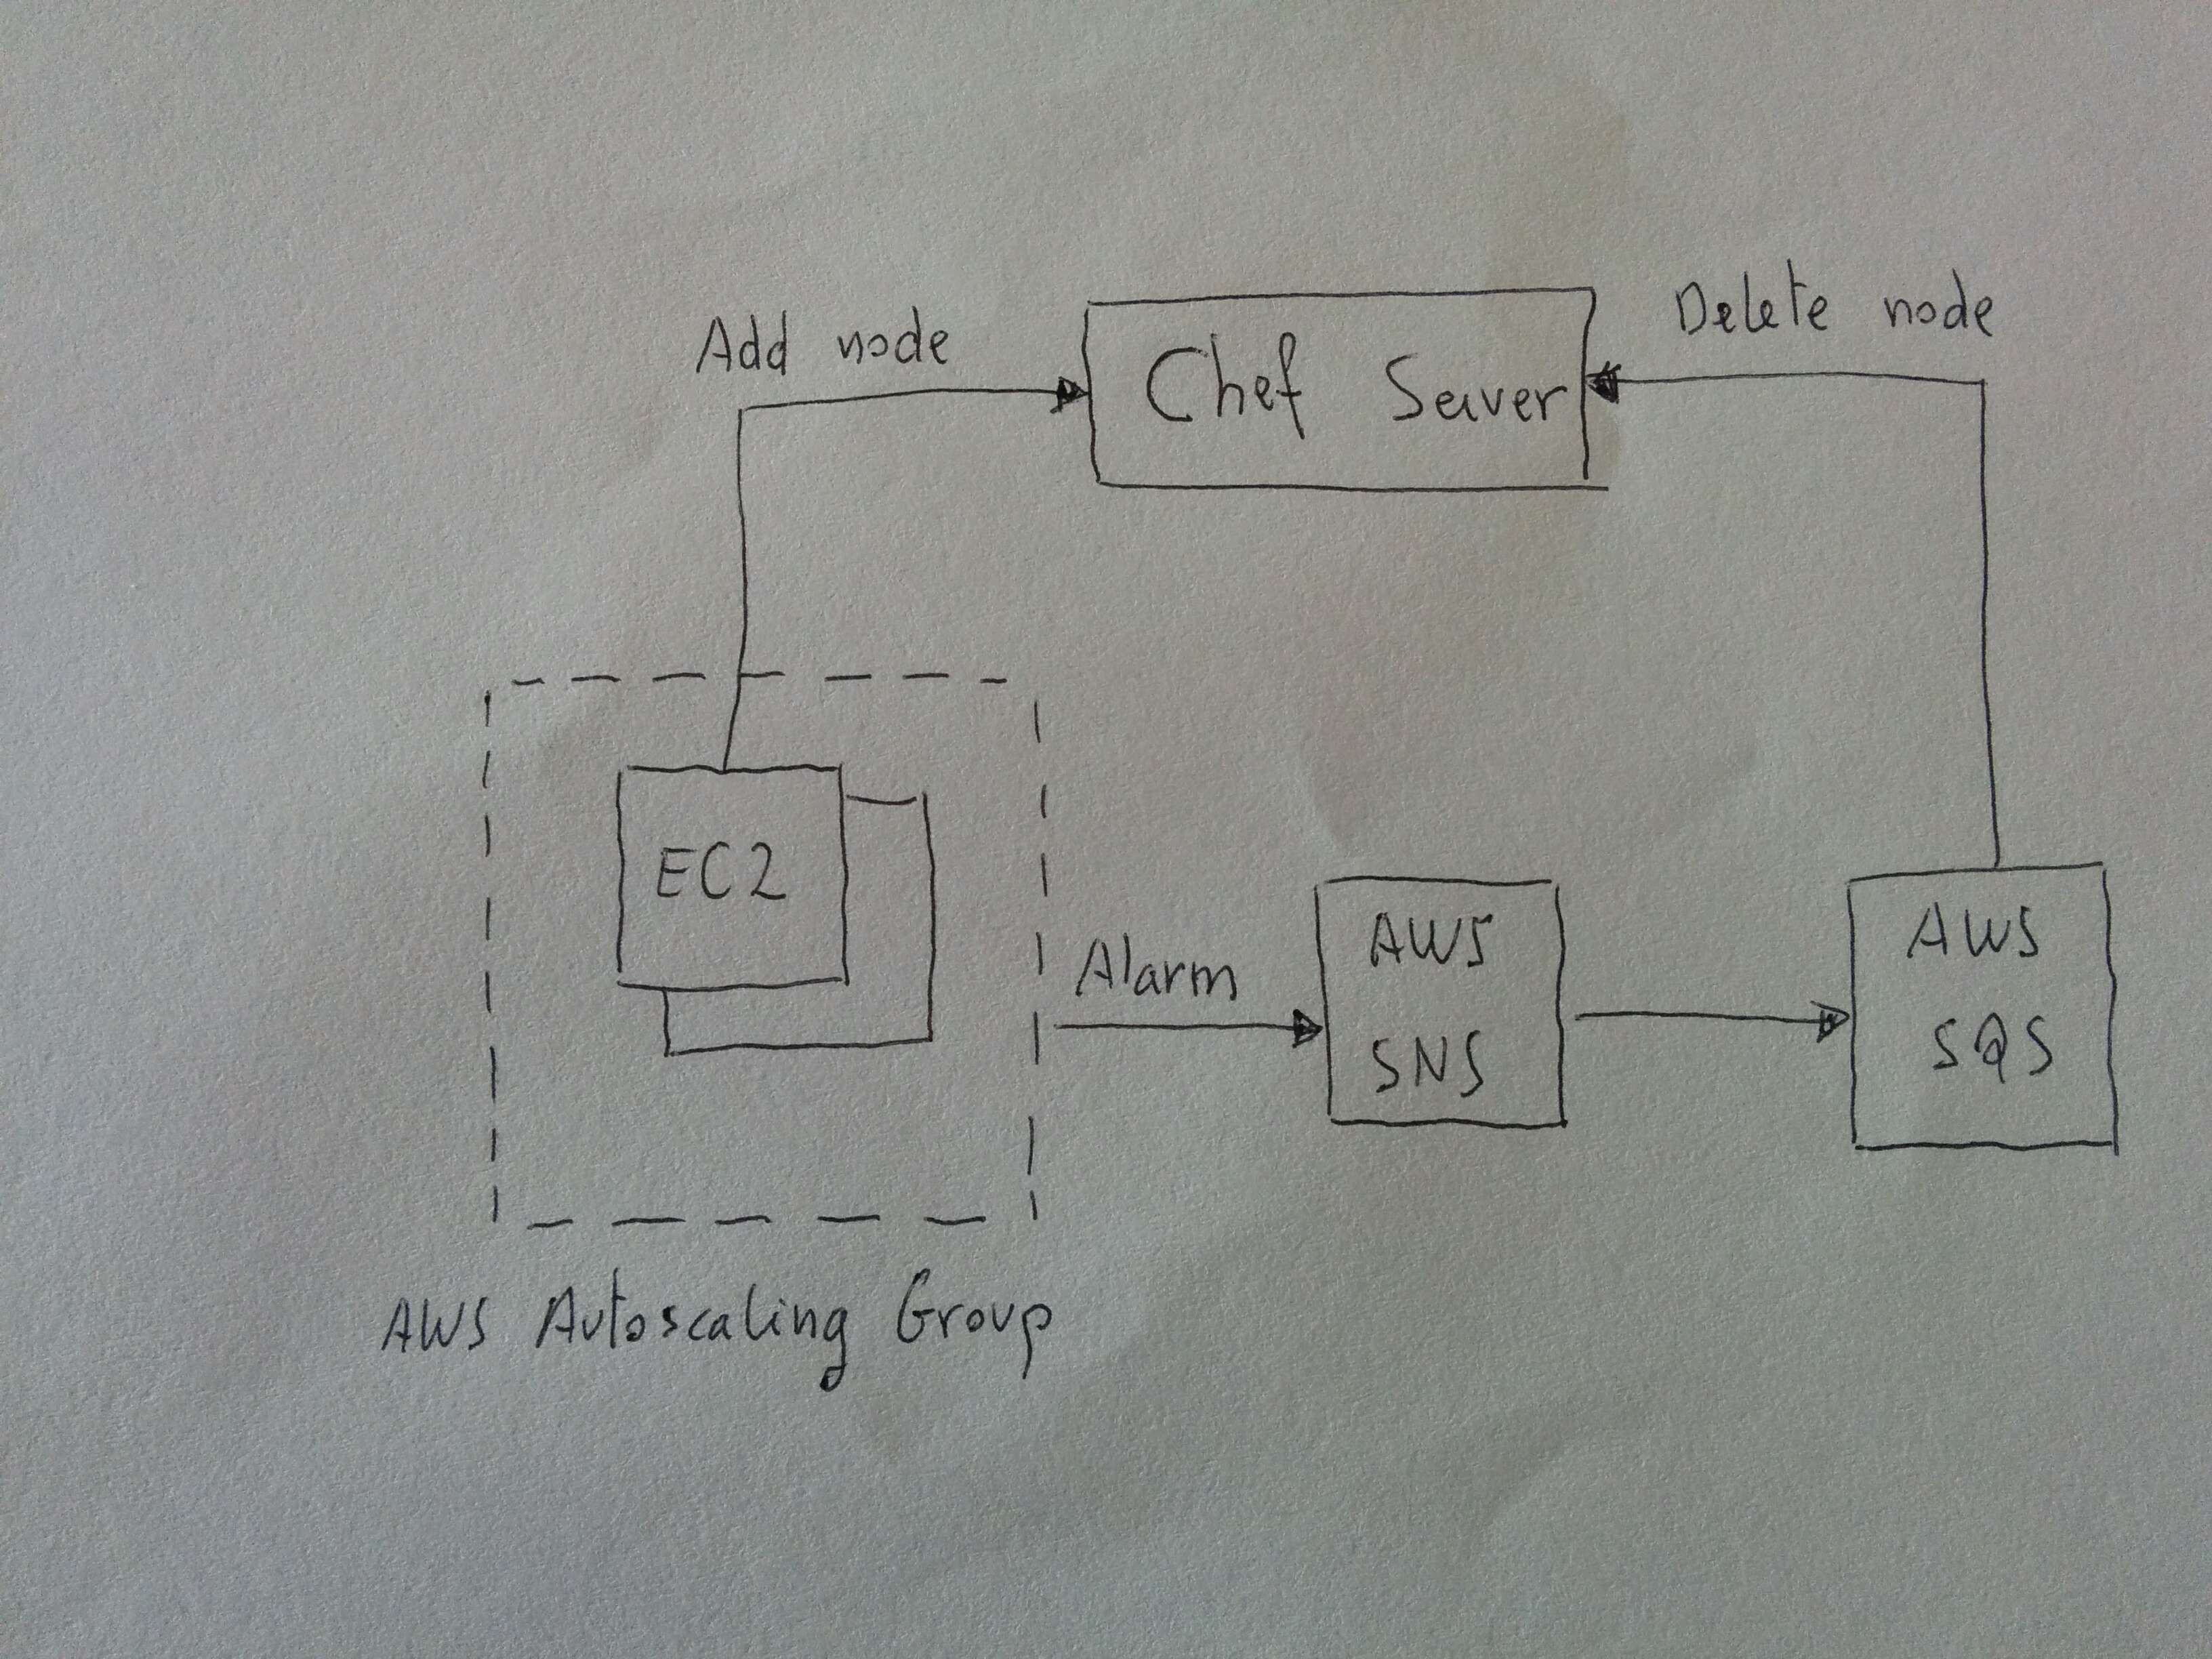 Add node
Chef Server
Delete node
EC2
Alarm
AWS
SNS
AWS
SQS
AWS Autoscaling Group